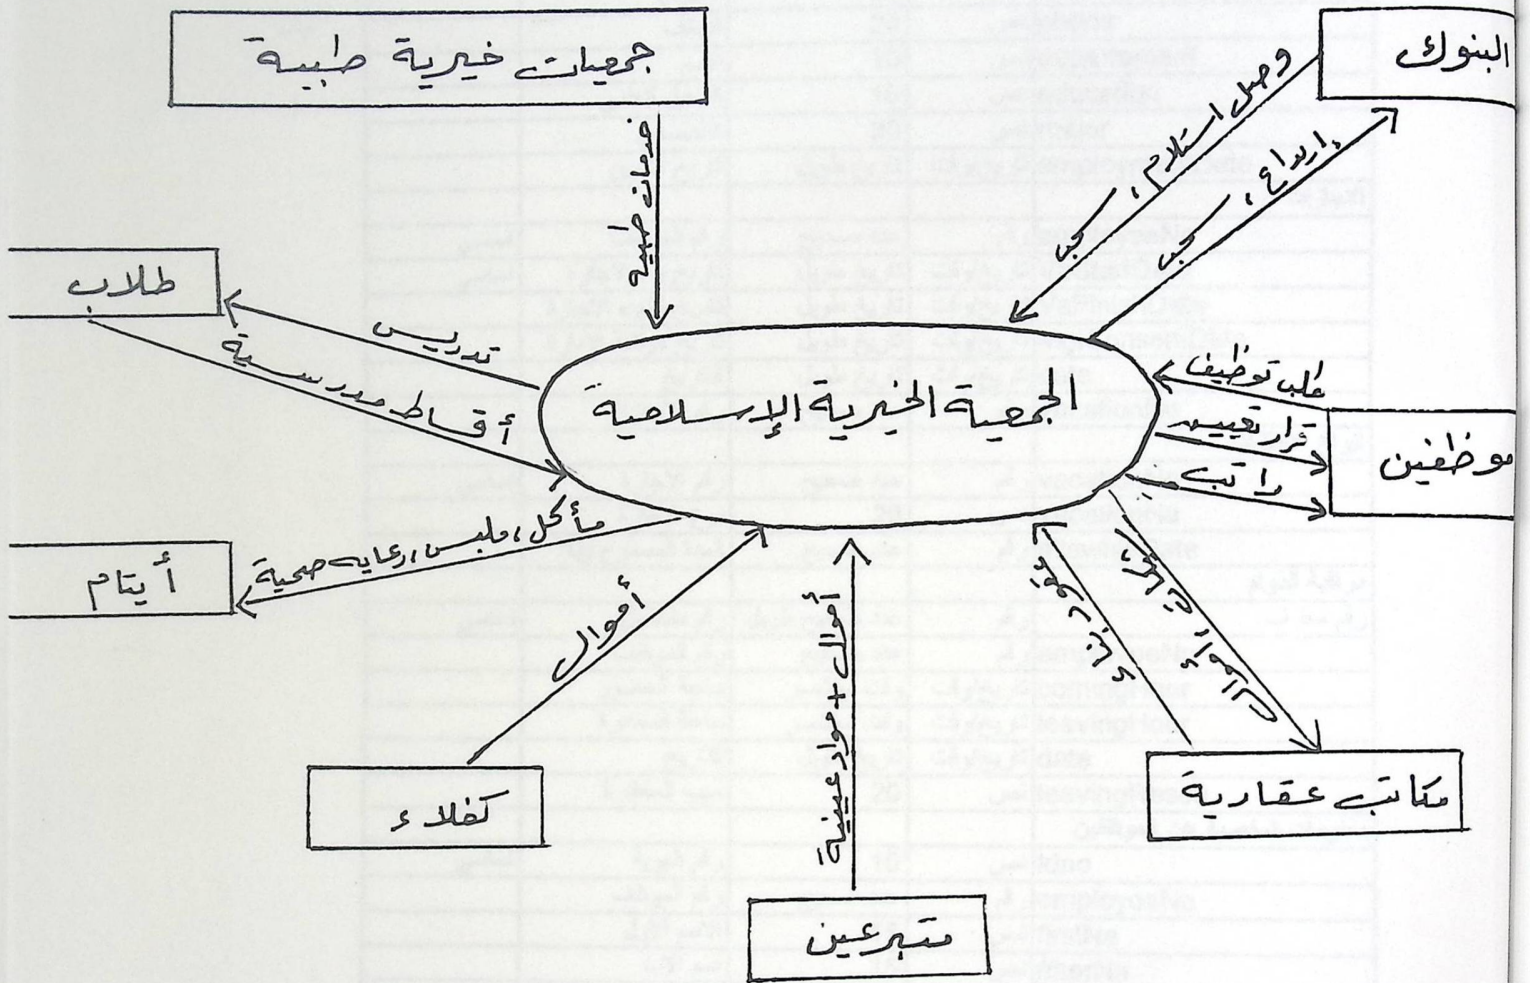 جمعيات خيرية طبية
البنوك
وصل استلام، سحب
إيداع، سحب
خدمات طبية
طلاب
تدريس
أقساط مدرسية
الجمعية الخيرية الإسلامية
طلب توظيف
قرار تعيين
راتب
موظفين
مأكل، ملبس، رعاية صحية
أيتام
أموال
أموال + مواد عينية
عقود
أموال
كفلاء
مكاتب عقارية
متبرعين